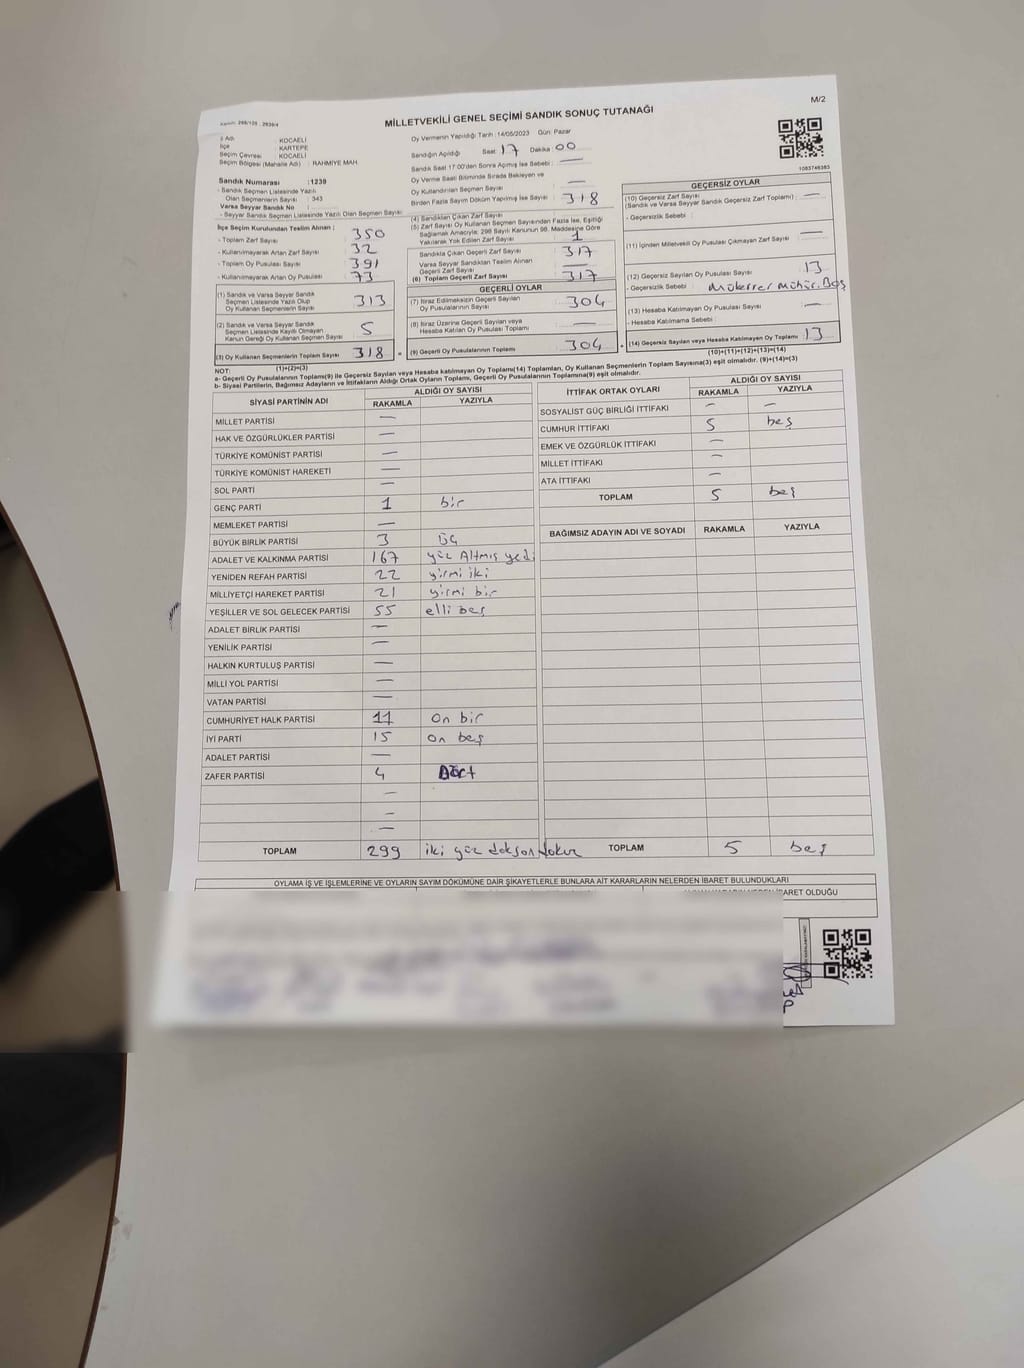 M/2
MİLLETVEKİLİ GENEL SEÇİMİ SANDIK SONUÇ TUTANAĞI
İl Adı : KOCAELİ
İlçe : KARTEPE
Seçim Çevresi : KOCAELİ
Seçim Bölgesi (Mahalle Adı) : RAHMİYE MAH.
Oy Vermenin Yapıldığı Tarih : 14/05/2023 Gün: Pazar
Sandığın Açıldığı Saat : 17 Dakika : 00
Sandık Saat 17:00'den Sonra Açılmış İse Sebebi : —
Oy Verme Saati Bitiminde Sırada Bekleyen ve
Oy Kullandırılan Seçmen Sayısı —
Birden Fazla Sayım Döküm Yapılmış İse Sayısı : 318
1083746383
Sandık Numarası : 1239
- Sandık Seçmen Listesinde Yazılı
Olan Seçmen Sayısı : 343
Varsa Seyyar Sandık No :
- Seyyar Sandık Seçmen Listesinde Yazılı Olan Seçmen Sayısı:
İlçe Seçim Kurulundan Teslim Alınan ;
- Toplam Zarf Sayısı : 350
- Kullanılmayarak Artan Zarf Sayısı : 32
- Toplam Oy Pusulası Sayısı : 391
- Kullanılmayarak Artan Oy Pusulası : 73
(1) Sandık ve Varsa Seyyar Sandık
Seçmen Listesinde Yazılı Olup
Oy Kullanan Seçmenlerin Sayısı : 313
(2) Sandık ve Varsa Seyyar Sandık
Seçmen Listesinde Kayıtlı Olmayan
Kanun Gereği Oy Kullanan Seçmen Sayısı : 5
(3) Oy Kullanan Seçmenlerin Toplam Sayısı : 318
(1)+(2)=(3)
(4) Sandıktan Çıkan Zarf Sayısı
(5) Zarf Sayısı Oy Kullanan Seçmen Sayısından Fazla İse, Eşitliği
Sağlamak Amacıyla; 298 Sayılı Kanunun 98. Maddesine Göre
Yakılarak Yok Edilen Zarf Sayısı : 1
Sandıkta Çıkan Geçerli Zarf Sayısı : 317
Varsa Seyyar Sandıktan Teslim Alınan
Geçerli Zarf Sayısı : —
(6) Toplam Geçerli Zarf Sayısı : 317
GEÇERLİ OYLAR
(7) İtiraz Edilmeksizin Geçerli Sayılan
Oy Pusulalarının Sayısı : 304
(8) İtiraz Üzerine Geçerli Sayılan veya
Hesaba Katılan Oy Pusulası Toplamı : —
(9) Geçerli Oy Pusulalarının Toplamı : 304
GEÇERSİZ OYLAR
(10) Geçersiz Zarf Sayısı : —
(Sandık ve Varsa Seyyar Sandık Geçersiz Zarf Toplamı)
- Geçersizlik Sebebi :
(11) İçinden Milletvekili Oy Pusulası Çıkmayan Zarf Sayısı : —
(12) Geçersiz Sayılan Oy Pusulası Sayısı : 13
- Geçersizlik Sebebi : Mükerrer Mühür. Boş
(13) Hesaba Katılmayan Oy Pusulası Sayısı : —
- Hesaba Katılmama Sebebi :
(14) Geçersiz Sayılan veya Hesaba Katılmayan Oy Toplamı : 13
(10)+(11)+(12)+(13)=(14)
NOT:
a- Geçerli Oy Pusulalarının Toplamı(9) ile Geçersiz Sayılan veya Hesaba katılmayan Oy Toplamı(14) Toplamları, Oy Kullanan Seçmenlerin Toplam Sayısına(3) eşit olmalıdır. (9)+(14)=(3)
b- Siyasi Partilerin, Bağımsız Adayların ve İttifakların Aldığı Ortak Oyların Toplamı, Geçerli Oy Pusulalarının Toplamına(9) eşit olmalıdır.
SİYASİ PARTİNİN ADI ALDIĞI OY SAYISI
RAKAMLA YAZIYLA
MİLLET PARTİSİ —
HAK VE ÖZGÜRLÜKLER PARTİSİ —
TÜRKİYE KOMÜNİST PARTİSİ —
TÜRKİYE KOMÜNİST HAREKETİ —
SOL PARTİ —
GENÇ PARTİ 1 bir
MEMLEKET PARTİSİ —
BÜYÜK BİRLİK PARTİSİ 3 üç
ADALET VE KALKINMA PARTİSİ 167 yüz Altmış yedi
YENİDEN REFAH PARTİSİ 22 yirmi iki
MİLLİYETÇİ HAREKET PARTİSİ 21 yirmi bir
YEŞİLLER VE SOL GELECEK PARTİSİ 55 elli beş
ADALET BİRLİK PARTİSİ —
YENİLİK PARTİSİ —
HALKIN KURTULUŞ PARTİSİ —
MİLLİ YOL PARTİSİ —
VATAN PARTİSİ —
CUMHURİYET HALK PARTİSİ 11 On bir
İYİ PARTİ 15 On beş
ADALET PARTİSİ —
ZAFER PARTİSİ 4 Dört
—
—
—
TOPLAM 299 iki yüz doksan dokuz
İTTİFAK ORTAK OYLARI ALDIĞI OY SAYISI
RAKAMLA YAZIYLA
SOSYALİST GÜÇ BİRLİĞİ İTTİFAKI — —
CUMHUR İTTİFAKI 5 beş
EMEK VE ÖZGÜRLÜK İTTİFAKI —
MİLLET İTTİFAKI —
ATA İTTİFAKI —
TOPLAM 5 beş
BAĞIMSIZ ADAYIN ADI VE SOYADI RAKAMLA YAZIYLA
TOPLAM 5 beş
OYLAMA İŞ VE İŞLEMLERİNE VE OYLARIN SAYIM DÖKÜMÜNE DAİR ŞİKAYETLERLE BUNLARA AİT KARARLARIN NELERDEN İBARET BULUNDUKLARI
İBARET OLDUĞU